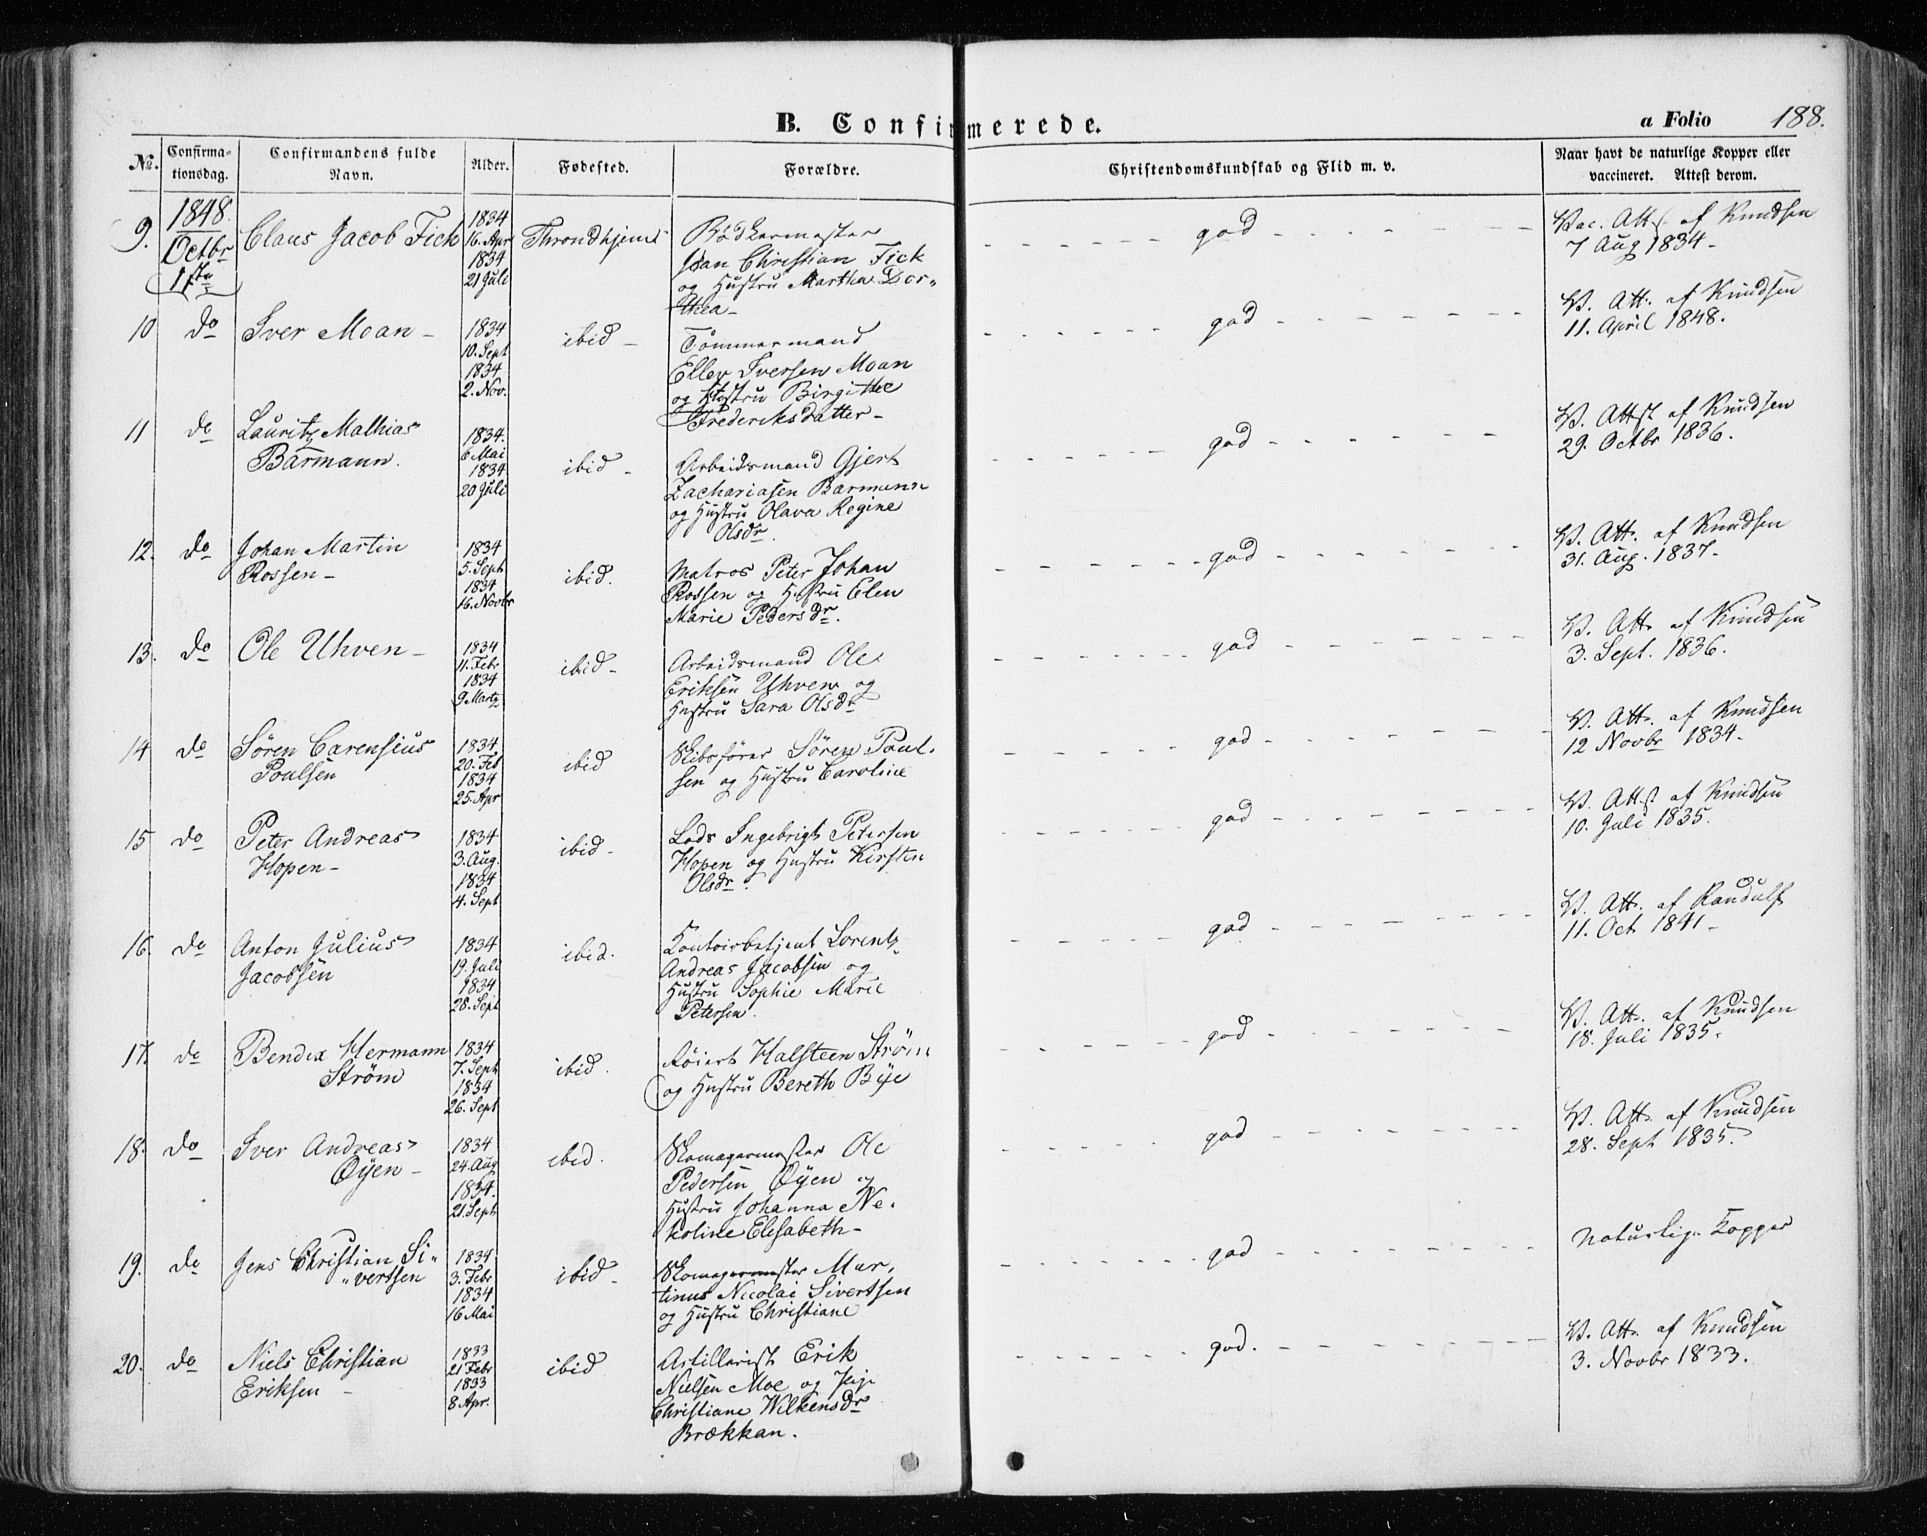 B. Confirmerede.
a Folio 188.
No. Confirmationsdag. Confirmandens fulde Navn. Alder. Fødested. Forældre. Christendomskundskab og Flid m. v. Naar havt de naturlige Kopper eller vaccineret. Attest derom.
9. 1848. Octbr 1ste Claus Jacob Fick 1834 16. Apr 1834 21 Juli Throndhjem Bødkermester
Joan Christian Fick
og Hustru Martha Dor-
thea - god Vac. Att. af Knudsen
7 Aug 1834 -
10 do Iver Moan - 1834 10. Sept 1834 2. Nov. ibid - Tømmermand
Ellev Iversen Moan
og Hustru Birgitthe
Frederiksdatter - god V. Att. af Knudsen
11. April 1848.
11 do Lauritz Mathias
Barmann. 1834. 6 Mai 1834 20 Juli ibid - Arbeidsmand Gjert
Zachariasen Barmann
og Hustru Olava Regine
Olsdr. god V. Attst af Knudsen
29. Octbr 1836.
12. do Johan Martin
Rossen - 1834 5. Sept 1834 16. Novbr ibid. Matros Peter Johan
Rossen og Hustru Elen
Marie Pedersdr. god V. Att. af Knudsen
31. Aug. 1837 -
13. do Ole Uhven - 1834 11. Febr 1834 9 Martz ibid - Arbeidsmand Ole
Eriksen Uhven og
Hustru Sara Olsdr god V. Att. af Knudsen
3. Sept. 1836.
14 do Søren Carensius
Poulsen 1834. 20. Feb 1834 25. Apr ibid Skibsfører Søren Poul-
sen og Hustru Caroline god V. Att. af Knudsen
12 Novbr 1834 -
15 do Peter Andreas
Hopen - 1834 3. Aug. 1834 4. Sept ibid - Lods Ingebrigt Petersen
Hopen og Hustru Kirsten
Olsdr. god V. Attst af Knudsen
10. Juli 1835.
16. do Anton Julius
Jacobsen 1834 19. Juli 1834 28. Sept ibid. Contoirbetjent Lorentz
Andreas Jacobsen og
Hustru Sophie Marie
Petersen. god V. Att. af Randulf
11. Oct 1841 -
17. do Bendix Hermann
Strøm 1834 7. Sept 1834 26. Sept ibid. Røiert Halsteen Strøm
og Hustru Bereth Bÿe god V. Att. af Knudsen
18. Juli 1835.
18. do Iver Andreas
Øÿen - 1834 24. Aug 1834. 21. Sept ibid. Skomagermester Ole
Pedersen Øÿen og
Hustru Johanna Ne-
koline Elisabeth - god V. Att. af Knudsen
28. Sept 1835.
19. do Jens Christian Si-
vertsen 1834. 3. Febr 1834 16 Mai ibid - Skomagermester Mar-
tinus Nicolai Sivertsen
og Hustru Christiane god naturlige Kopper
20. do Niels Christian
Eriksen - 1833 21 Febr 1833 8 Apr. ibid Artillerist Erik
Nielsen Moe og Pige
Christiane Wilkensdr
Brækkan. god. V. Att. af Knudsen
3. Novbr 1833.